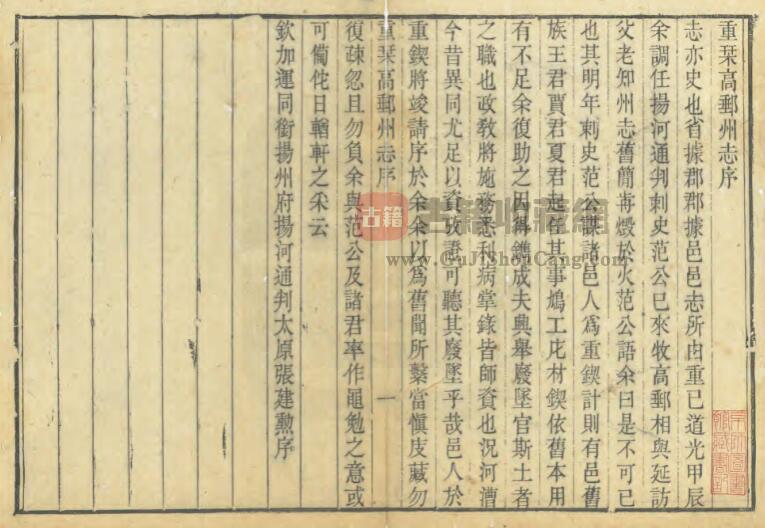 重栞高郵州志序
志亦史也省據郡郡據邑邑志所由重已道光甲辰
余調任揚河通判刺史范公已來牧高郵相與延訪
父老知州志舊簡毒燬於火范公語余曰是不可已
也其明年刺史范公謀諸邑人為重鍥計則有邑舊
族王君賈君夏君起任其事鳩工庀材鍥依舊本用
有不足余復助之因得鐫成夫典舉廢墜官斯土者
之職也政教將施務悉利病掌錄皆師資也況河漕
今昔異同尤足以資攷證可聽其廢墜乎哉邑人於
重鍥將竣請序於余余以為舊聞所繫當愼庋藏勿
重栞高郵州志序 一
復疎忽且勿負余與范公及諸君率作黽勉之意或
可備佗日輶軒之采云
欽加運同銜揚州府揚河通判太原張建勲序
古籍
古籍收藏網
www.GuJiShouCang.com